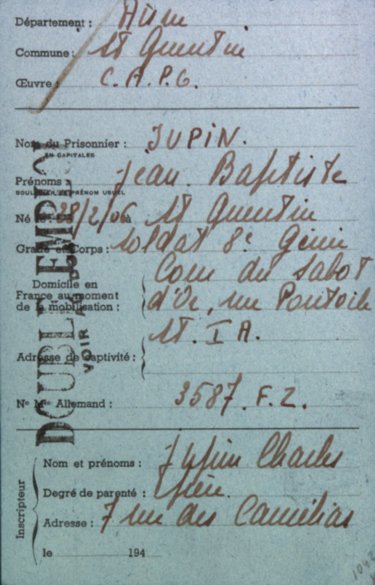 Département : Aisne
Commune : St Quentin
Œuvre : C.A.P.G.
Nom du Prisonnier : JUPIN.
EN CAPITALES
Prénoms : Jean Baptiste
SOULIGNER LE PRÉNOM USUEL
Né le : 28/2/06 à St Quentin
Grade et Corps : Soldat 8e Génie
Domicile en France au moment de la mobilisation : Cour du Sabot
d'Or, rue Pontoile
Adresse de captivité : St. I A.
No Mle Allemand : 3587. F. Z.
DOUBLE EMPLOI
VOIR
Inscripteur
Nom et prénoms : Jupin Charles
Degré de parenté : Frère.
Adresse : 7 rue des Camélias
le 194